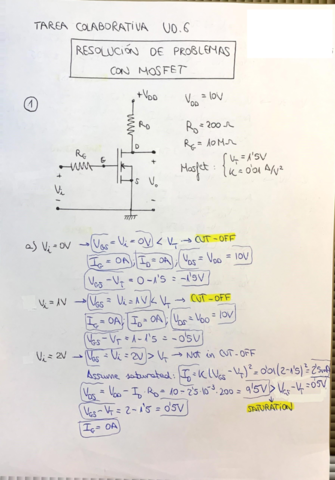 TAREA COLABORATIVA UD.6
RESOLUCIÓN DE PROBLEMAS
CON MOSFET
①
+V_DD
R_D
D
R_G
G
S
V_i
V_o
V_DD = 10V
R_D = 200 Ω
R_G = 10 MΩ
Mosfet: { V_T = 1'5V
K = 0'01 A/V²
a) V_i = 0V → V_GS = V_i = 0V < V_T → CUT-OFF
I_G = 0A, I_D = 0A, V_DS = V_DD = 10V
V_GS - V_T = 0 - 1'5 = -1'5V
V_i = 1V → V_GS = V_i = 1V < V_T → CUT-OFF
I_G = 0A, I_D = 0A, V_DS = V_DD = 10V
V_GS - V_T = 1 - 1'5 = -0'5V
V_i = 2V → V_GS = V_i = 2V > V_T → Not in CUT-OFF
Assume saturated: I_D = K(V_GS - V_T)² = 0'01(2-1'5)² = 2'5mA
V_DS = V_DD - I_D R_D = 10 - 2'5·10⁻³·200 = 9'5V > V_GS - V_T = 0'5V
V_GS - V_T = 2 - 1'5 = 0'5V
SATURATION
I_G = 0A